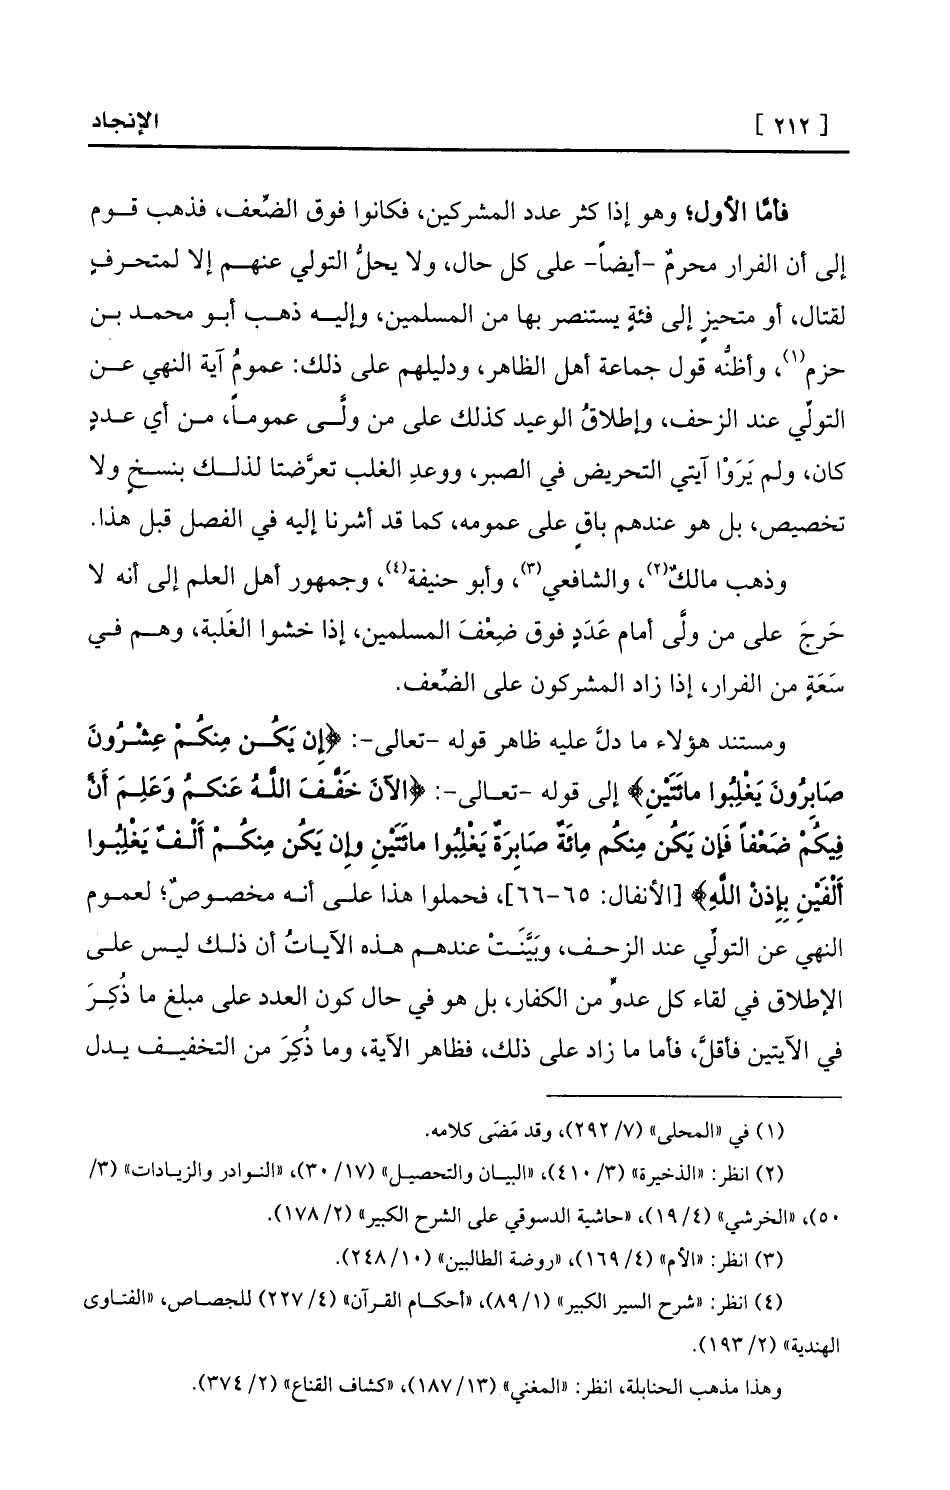 [ ٢١٢ ] الإنجاد
فأمَّا الأول؛ وهو إذا كثر عدد المشركين، فكانوا فوق الضّعف، فذهب قوم
إلى أن الفرار محرمٌ -أيضاً- على كل حال، ولا يحلُّ التولي عنهم إلا لمتحرفٍ
لقتال، أو متحيزٍ إلى فئةٍ يستنصر بها من المسلمين، وإليه ذهب أبو محمد بن
حزم(١)، وأظنُّه قول جماعة أهل الظاهر، ودليلهم على ذلك: عمومُ آية النهي عن
التولّي عند الزحف، وإطلاقُ الوعيد كذلك على من ولَّى عموماً، من أي عددٍ
كان، ولم يَرَوْا آيتي التحريض في الصبر، ووعدِ الغلب تعرَّضتا لذلك بنسخٍ ولا
تخصيص، بل هو عندهم باقٍ على عمومه، كما قد أشرنا إليه في الفصل قبل هذا.
وذهب مالكٌ(٢)، والشافعي(٣)، وأبو حنيفة(٤)، وجمهور أهل العلم إلى أنه لا
حَرجَ على من ولَّى أمام عَدَدٍ فوق ضِعْفَ المسلمين، إذا خشوا الغَلبة، وهم في
سَعَةٍ من الفرار، إذا زاد المشركون على الضّعف.
ومستند هؤلاء ما دلَّ عليه ظاهر قوله -تعالى-: ﴿إِن يَكُن مِنكُمْ عِشْرُونَ
صَابِرُونَ يَغْلِبُوا مائَتَيْنِ﴾ إلى قوله -تعالى-: ﴿الآنَ خَفَّفَ اللَّهُ عَنكمُ وَعَلِمَ أَنَّ
فِيكُمْ ضَعْفاً فَإِن يَكُن مِنكُم مِائَةٌ صَابِرَةٌ يَغْلِبُوا مائَتَيْنِ وإِن يَكُن مِنكُمْ أَلْفٌ يَغْلِبُوا
أَلْفَيْنِ بِإِذنْ اللَّهِ﴾ [الأنفال: ٦٥-٦٦]، فحملوا هذا على أنه مخصوصٌ؛ لعموم
النهي عن التولّي عند الزحف، وبَيَّنَتْ عندهم هذه الآياتُ أن ذلك ليس على
الإطلاق في لقاء كل عدوٍّ من الكفار، بل هو في حال كون العدد على مبلغ ما ذُكِرَ
في الآيتين فأقلَّ، فأما ما زاد على ذلك، فظاهر الآية، وما ذُكِرَ من التخفيف يدل
(١) في «المحلى» (٧/ ٢٩٢)، وقد مَضَى كلامه.
(٢) انظر: «الذخيرة» (٣/ ٤١٠)، «البيان والتحصيل» (١٧/ ٣٠)، «النوادر والزيادات» (٣/
٥٠)، «الخرشي» (٤/ ١٩)، «حاشية الدسوقي على الشرح الكبير» (٢/ ١٧٨).
(٣) انظر: «الأم» (٤/ ١٦٩)، «روضة الطالبين» (١٠/ ٢٤٨).
(٤) انظر: «شرح السير الكبير» (١/ ٨٩)، «أحكام القرآن» (٤/ ٢٢٧) للجصاص، «الفتاوى
الهندية» (٢/ ١٩٣).
وهذا مذهب الحنابلة، انظر: «المغني» (١٣/ ١٨٧)، «كشاف القناع» (٢/ ٣٧٤).